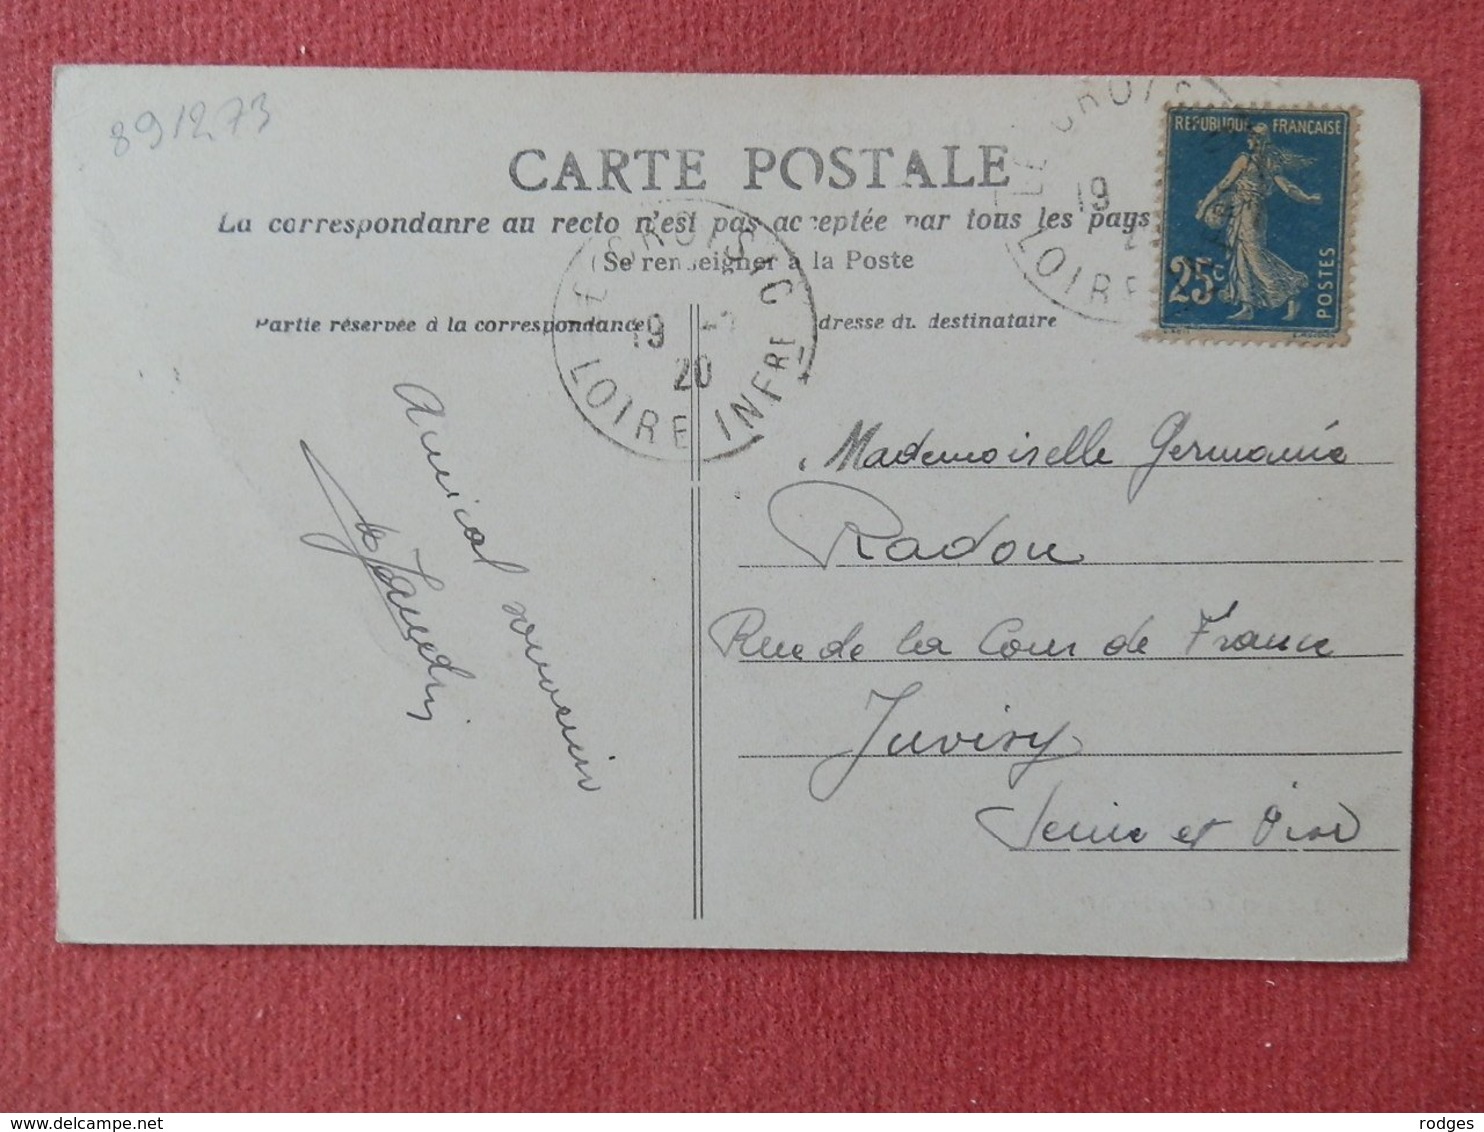 891273
CARTE POSTALE
La correspondanre au recto n'est pas acceptée par tous les pays
(Se renseigner à la Poste
Partie réservée à la correspondance
dresse du destinataire
LE CROISIC
19
20
LOIRE INFRE
LE CROIS
19
2
LOIRE
REPUBLIQUE FRANÇAISE
25c
POSTES
Amical souvenir
Mademoiselle Germanie
Radou
Rue de la Cour de France
Juvisy
Seine et Oise
rodges